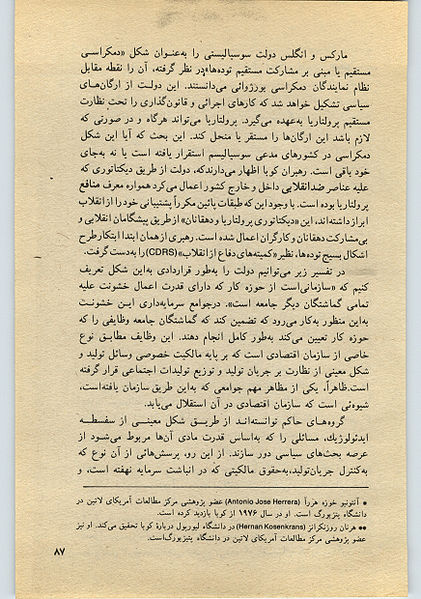 مارکس و انگلس دولت سوسیالیستی را به‌عنوان شکل «دمکراسی
مستقیم یا مبنی بر مشارکت مستقیم توده‌ها» در نظر گرفته، آن را نقطه مقابل
نظام نمایندگان دمکراسی بورژوائی می‌دانستند. این دولت از ارگان‌های
سیاسی تشکیل خواهد شد که کارهای اجرائی و قانون‌گذاری را تحت نظارت
مستقیم پرولتاریا به‌عهده می‌گیرد. پرولتاریا می‌تواند هرگاه و در صورتی که
لازم باشد این ارگان‌ها را مستقر یا منحل کند. این بحث که آیا این شکل
دمکراسی در کشورهای مدعی سوسیالیسم استقرار یافته است یا نه به‌جای
خود باقی است. رهبران کوبا اظهار می‌دارند که، دولت از طریق دیکتاتوری که
علیه عناصر ضدانقلابی داخل و خارج کشور اعمال می‌کرد همواره معرف منافع
پرولتاریا بوده است. با وجود این که طبقات پائین مکرراً پشتیبانی خود را از انقلاب
ابراز داشته‌اند، این «دیکتاتوری پرولتاریا و دهقانان» از طریق پیشگامان انقلابی و
بی‌مشارکت دهقانان و کارگران اعمال شده است. رهبری از همان ابتدا ابتکار طرح
اشکال بسیج توده‌ها، نظیر «کمیته‌های دفاع از انقلاب» (CDRS) را به‌دست گرفت.
در تفسیر زیر می‌توانیم دولت را به‌طور قراردادی به‌این شکل تعریف
کنیم که «سازمانی‌است از حوزه کار که دارای قدرت اعمال خشونت علیه
تمامی گماشتگان دیگر جامعه است». درجوامع سرمایه‌داری این خشونت
به‌این منظور به‌کار می‌رود که تضمین کند که گماشتگان جامعه وظایفی را که
حوزه کار تعیین می‌کند به‌طور کامل انجام دهند. این وظایف مطابق نوع
خاصی از سازمان اقتصادی است که بر پایه مالکیت خصوصی وسائل تولید و
شکل معینی از نظارت بر جریان تولید و توزیع تولیدات اجتماعی قرار گرفته
است.ظاهراً، یکی از مظاهر مهم جوامعی که به‌این طریق سازمان یافته‌است،
شیوه‌ئی است که سازمان اقتصادی در آن استقلال می‌یابد.
گروه‌های حاکم توانسته‌اند از طریق شکل معینی از سفسطه
ایدئولوژیك، مسائلی را که به‌اساس قدرت مادی آن‌ها مربوط می‌شود از
عرصه بحث‌های سیاسی دور سازند. از این رو، پرسش‌هائی از آن نوع که
به‌کنترل جریان‌تولید،به‌حقوق مالکیتی که در انباشت سرمایه نهفته است، و
* آنتونیو خوزه هررآ (Antonio Jose Herrera) عضو پژوهشی مرکز مطالعات آمریکای لاتین در
دانشگاه پتزبورگ است. او در سال ۱۹۷۶ از کوبا بازدید کرده است.
** هرنان روزنکرانز (Hernan Kosenkrans) در دانشگاه لیورپول دربارهٔ کوبا تحقیق می‌کند. او نیز
عضو پژوهشی مرکز مطالعات آمریکای لاتین در دانشگاه پتیزبورگ‌است.
۸۷